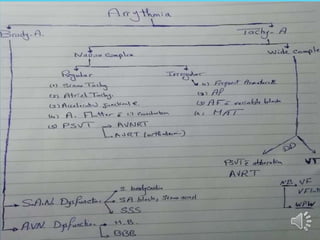 Arrythmia
Brady-A.
Tachy-A
Narrow Complex
Wide Comple
Regular
Irregular
(1) Sinus Tachy
(2) Atrial Tachy.
(3) Accelerated Junctional
(4) A. Flutter
(5) PSVT
AVNRT
AVRT (orthodromic)
(1) Frequent
(2) AF
(3) AF variable block
(4) MAT
DD
PSVT aberration
AVRT
VT
N.B. VF
VFlutt
WPW
S.A.N. Dysfunction
S. bradycardia
SA block, Sinus arrest
SSS
A.V.N. Dysfunction
H.B.
BBB